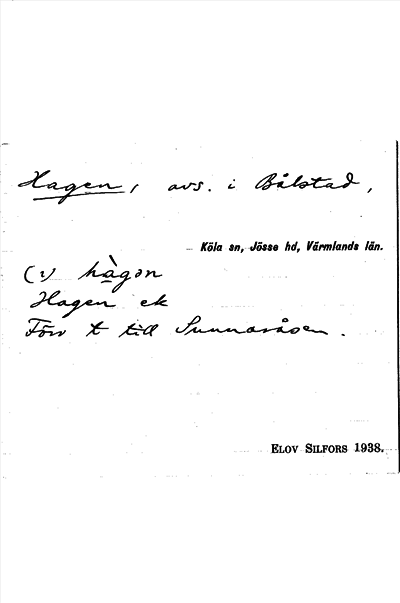 Hagen, avs. i Bålstad,
Köla sn, Jösse hd, Värmlands län.
(2) hàgən
Hagen ek
Förr t till Sunnanåsen.
ELOV SILFORS 1938.